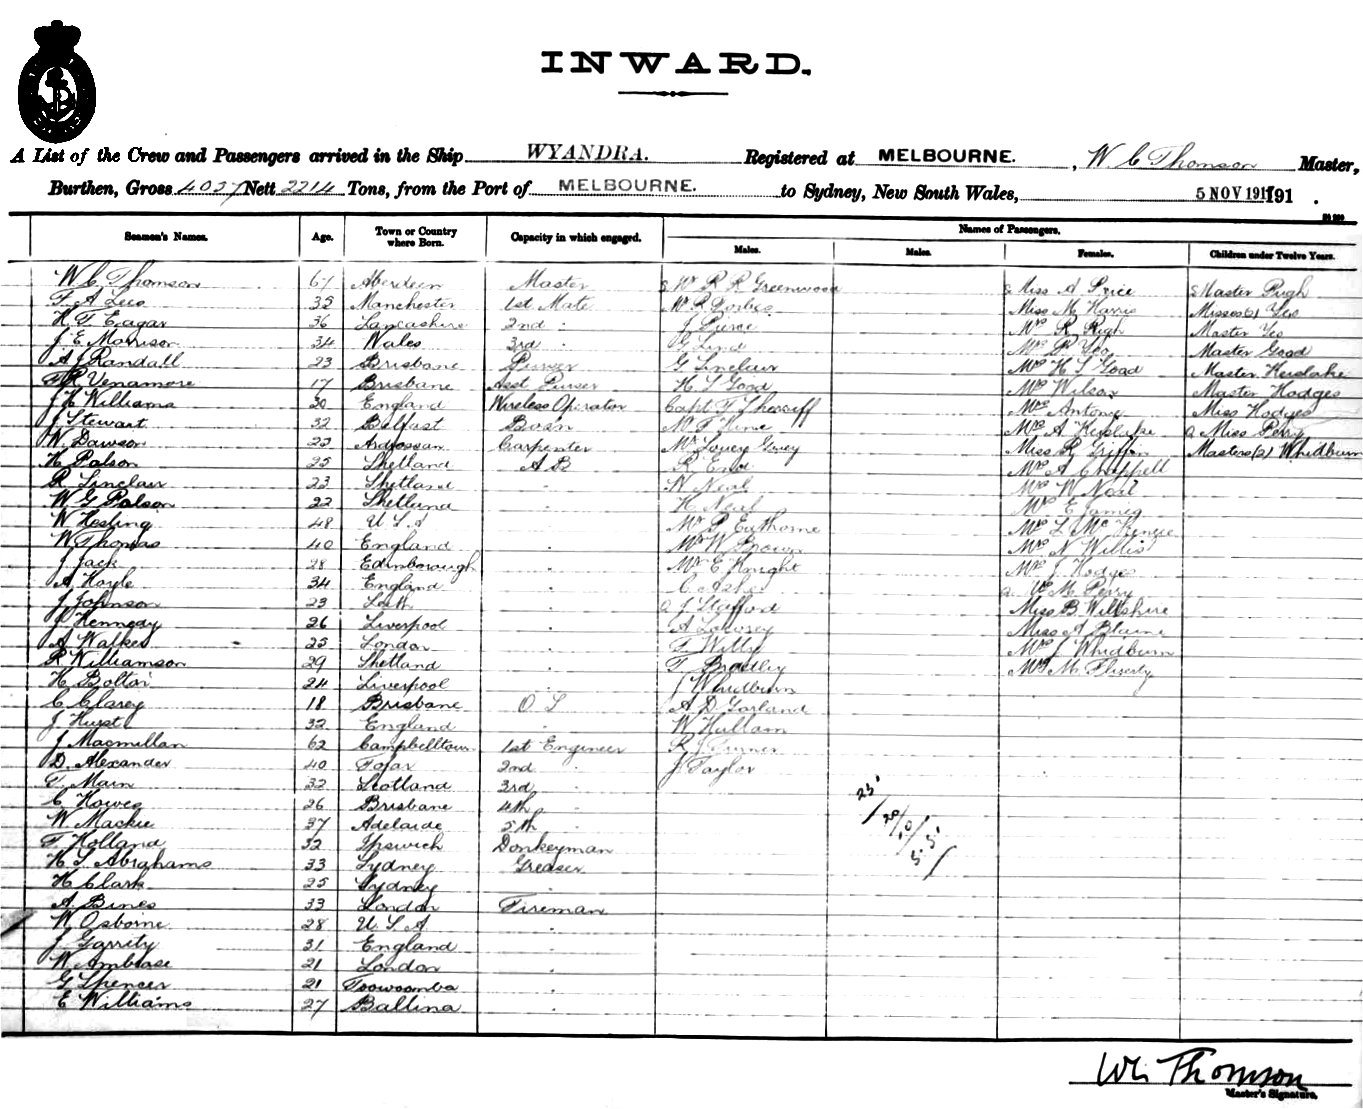 INWARD.
A List of the Crew and Passengers arrived in the Ship WYANDRA. Registered at MELBOURNE. , W C Thomson Master,
Burthen, Gross 4027 Nett 2214 Tons, from the Port of MELBOURNE. to Sydney, New South Wales, 5 NOV 1917 191 .
Seamen's Names. Age. Town or Country where Born. Capacity in which engaged. Names of Passengers.
Males. Males. Females. Children under Twelve Years.
W C Thomson 67 Aberdeen Master Mr R R Greenwood Miss A Price Master Pugh
F A Lees 35 Manchester 1st Mate Mr R Forbes Miss M Harris Misses (2) Yeo
H T Eagar 36 Lancashire 2nd " J Pierce Mrs R Pugh Master Yeo
J E Morrison 34 Wales 3rd " G Lind Mrs Yeo Master Good
A J Randall 23 Brisbane Purser G Sinclair Mrs H S Good Master Kerslake
F R Venamore 17 Brisbane Asst Purser H S Good Mrs Wilson Master Hodges
J H Williams 30 England Wireless Operator Capt T Sherriff Mrs Antonie Miss Hodges
J Stewart 32 Belfast Bosn Mrs A Kerslake a Miss Perry
W. Dawson 23 Ardrossan Carpenter Miss R Griffin Masters (2) Whidburn
H Polson 25 Shetland A B R End Mrs A Chappell
R Sinclair 23 Shetland " N Neal Mrs W Neal
W G Polson 22 Shetland " H Neal Mrs E James
W Hesling 48 U S A " Mr P Eathorne
W Thomas 40 England " Mr W Brown Mrs N Willis
J Jack 28 Edinborough " Mr E Knight Mrs J Hodges
A Hoyle 34 England " C Asher a Mrs M Perry
J Johnson 23 Leith " a J Stafford Miss B Wiltshire
J Kennedy 26 Liverpool " A Lowrey Miss A Blaine
A Walker 25 London " F Witty Mrs J Whidburn
R Williamson 29 Shetland " T Bradley
H Bolton 24 Liverpool " J Whidburn
C Clarey 18 Brisbane O S A D Garland
J Hurst 32 England " W Hullam
J Macmillan 62 Campbelltown 1st Engineer R J Turner
D. Alexander 40 Fofar 2nd " J Taylor
T Main 32 Scotland 3rd "
C Howes 26 Brisbane 4th "
W Mackie 37 Adelaide 5th "
F Holland 32 Ipswich Donkeyman
H S Abrahams 33 Sydney Greaser
H Clark 25 Sydney "
A Bines 33 London Fireman
W Osborne 28 U S A "
J Garrity 31 England "
W Ambrose 21 London "
G Spencer 21 Toowoomba "
E Williams 27 Ballina "
W C Thomson
Master's Signature.